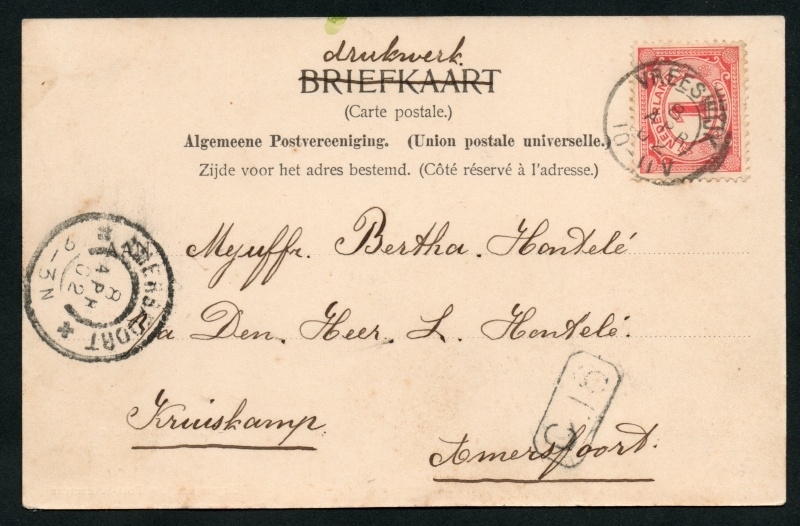 drukwerk
BRIEFKAART
(Carte postale.)
Algemeene Postvereeniging. (Union postale universelle.)
Zijde voor het adres bestemd. (Côté réservé à l'adresse.)
NEDERLAND
1
VREESWIJK
8 APR 02
10-11 V
AMERSFOORT
8 APR 02
2-3N
Mejuffr. Bertha. Hontelé
a Den. Heer. L. Hontelé.
Kruiskamp.
Amersfoort.